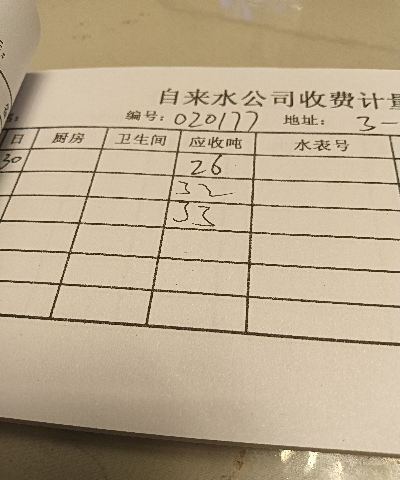 自来水公司收费计量
编号: 020177 地址: 3-
日 厨房 卫生间 应收吨 水表号
30 26
32
33